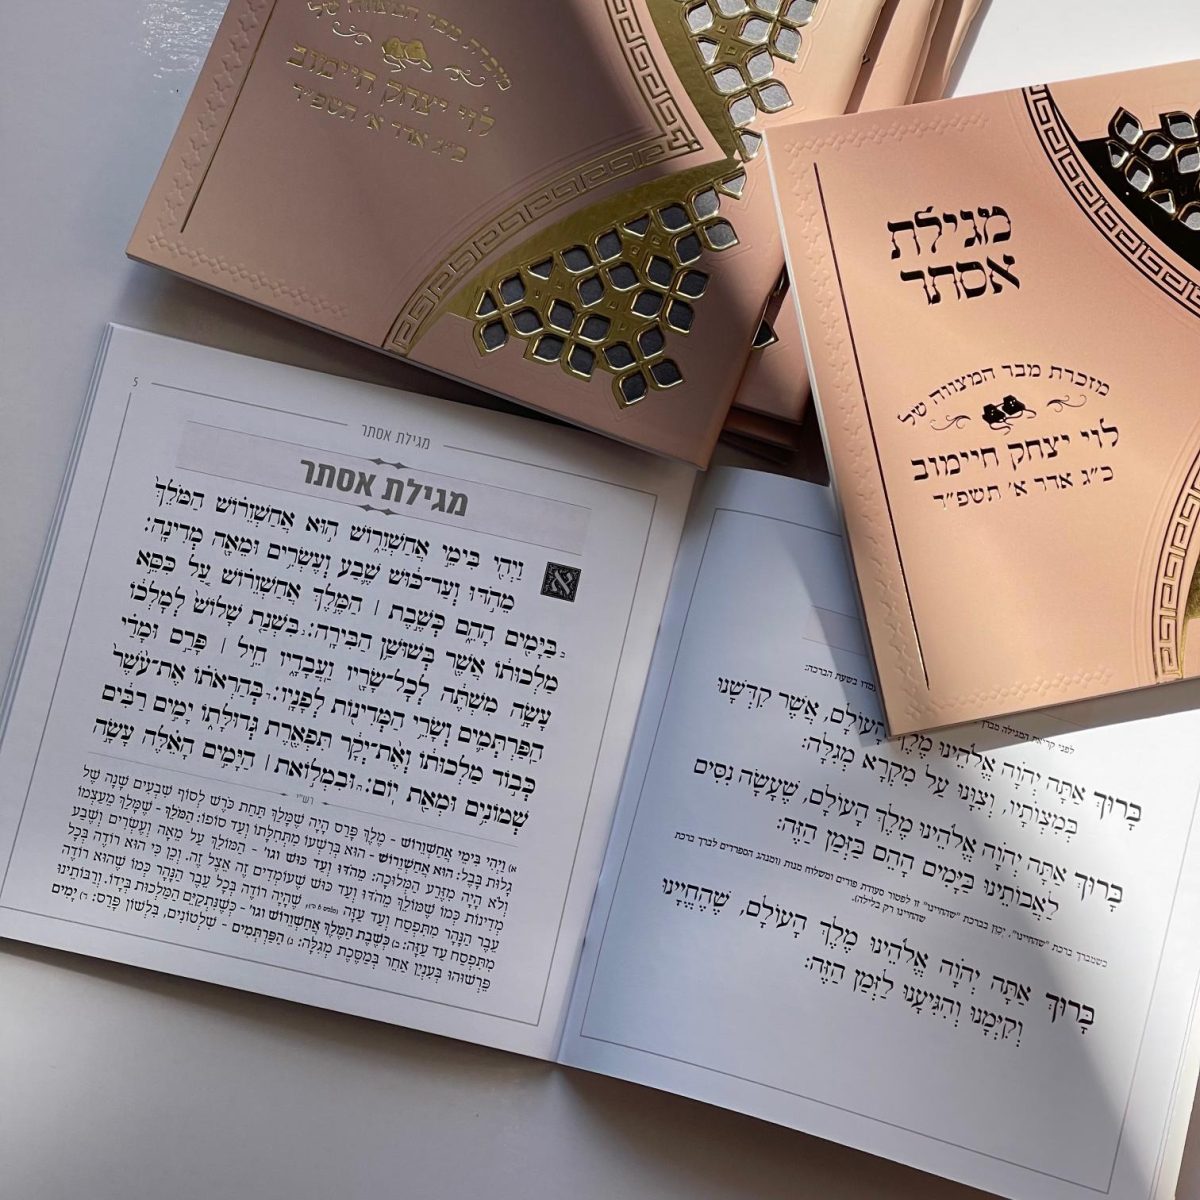 מזכרת מבר המצווה של
לוי יצחק חיימוב
כ״ג אדר א׳ תשפ״ד
מגילת
אסתר
מזכרת מבר המצווה של
לוי יצחק חיימוב
כ״ג אדר א׳ תשפ״ד
לפני קריאת המגילה מברך
בשעת הברכה:
בָּרוּךְ אַתָּה יְהֹוָה אֱלֹהֵינוּ מֶלֶךְ הָעוֹלָם, אֲשֶׁר קִדְּשָׁנוּ
בְּמִצְוֹתָיו, וְצִוָּנוּ עַל מִקְרָא מְגִלָּה:
בָּרוּךְ אַתָּה יְהֹוָה אֱלֹהֵינוּ מֶלֶךְ הָעוֹלָם, שֶׁעָשָׂה נִסִּים
לַאֲבוֹתֵינוּ בַּיָּמִים הָהֵם בַּזְּמַן הַזֶּה:
כשמברך ברכת "שהחיינו", יכון בברכת "שהחיינו" זו לפטור סעודת פורים ומשלוח מנות (ומנהג הספרדים לברך ברכת
שהחיינו רק בלילה).
בָּרוּךְ אַתָּה יְהֹוָה אֱלֹהֵינוּ מֶלֶךְ הָעוֹלָם, שֶׁהֶחֱיָינוּ
וְקִיְּמָנוּ וְהִגִּיעָנוּ לַזְּמַן הַזֶּה:
5
מגילת אסתר
מגילת אסתר
א וַיְהִי בִּימֵי אֲחַשְׁוֵרוֹשׁ הוּא אֲחַשְׁוֵרוֹשׁ הַמֹּלֵךְ
מֵהֹדּוּ וְעַד־כּוּשׁ שֶׁבַע וְעֶשְׂרִים וּמֵאָה מְדִינָה:
ב בַּיָּמִים הָהֵם כְּשֶׁבֶת ׀ הַמֶּלֶךְ אֲחַשְׁוֵרוֹשׁ עַל כִּסֵּא
מַלְכוּתוֹ אֲשֶׁר בְּשׁוּשַׁן הַבִּירָה: ג בִּשְׁנַת שָׁלוֹשׁ לְמָלְכוֹ
עָשָׂה מִשְׁתֶּה לְכׇל־שָׂרָיו וַעֲבָדָיו חֵיל ׀ פָּרַס וּמָדַי
הַפַּרְתְּמִים וְשָׂרֵי הַמְּדִינוֹת לְפָנָיו: ד בְּהַרְאֹתוֹ אֶת־עֹשֶׁר
כְּבוֹד מַלְכוּתוֹ וְאֶת־יְקָר תִּפְאֶרֶת גְּדוּלָּתוֹ יָמִים רַבִּים
שְׁמוֹנִים וּמְאַת יוֹם: ה וּבִמְלוֹאת ׀ הַיָּמִים הָאֵלֶּה עָשָׂה
רש״י
א) וַיְהִי בִּימֵי אֲחַשְׁוֵרוֹשׁ - מֶלֶךְ פָּרַס הָיָה שֶׁמָּלַךְ תַּחַת כֹּרֶשׁ לְסוֹף שִׁבְעִים שָׁנָה שֶׁל
גָּלוּת בָּבֶל: הוּא אֲחַשְׁוֵרוֹשׁ - הוּא בְּרִשְׁעוֹ מִתְּחִלָּתוֹ וְעַד סוֹפוֹ: הַמֹּלֵךְ - שֶׁמָּלַךְ מֵעַצְמוֹ
וְלֹא הָיָה מִזֶּרַע הַמְּלוּכָה: מֵהֹדּוּ וְעַד כּוּשׁ וגו' - הַמּוֹלֵךְ עַל מֵאָה וְעֶשְׂרִים וְשֶׁבַע
מְדִינוֹת כְּמוֹ שֶׁמּוֹלֵךְ מֵהֹדּוּ וְעַד כּוּשׁ שֶׁעוֹמְדִים זֶה אֵצֶל זֶה. וְכֵן כִּי הוּא רוֹדֶה בְּכׇל
עֵבֶר הַנָּהָר מִתִּפְסַח וְעַד עַזָּה שֶׁהָיָה רוֹדֶה בְּכׇל עֵבֶר הַנָּהָר כְּמוֹ שֶׁהוּא רוֹדֶה
מִתִּפְסַח עַד עַזָּה: ב) כְּשֶׁבֶת הַמֶּלֶךְ אֲחַשְׁוֵרוֹשׁ וגו' - כְּשֶׁנִּתְקַיֵּים הַמַּלְכוּת בְּיָדוֹ. וְרַבּוֹתֵינוּ
פֵּרְשׁוּהוּ בְּעִנְיָן אַחֵר בְּמַסֶּכֶת מְגִלָּה: ג) הַפַּרְתְּמִים - שִׁלְטוֹנִים, בִּלְשׁוֹן פָּרַס: ד) יָמִים